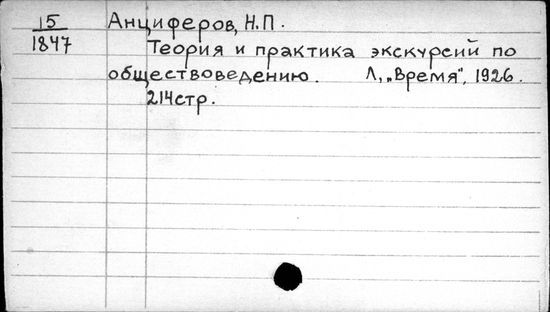 15 Анциферов, Н.П.
1847 Теория и практика экскурсий по
обществоведению. Л, „Время", 1926.
214стр.